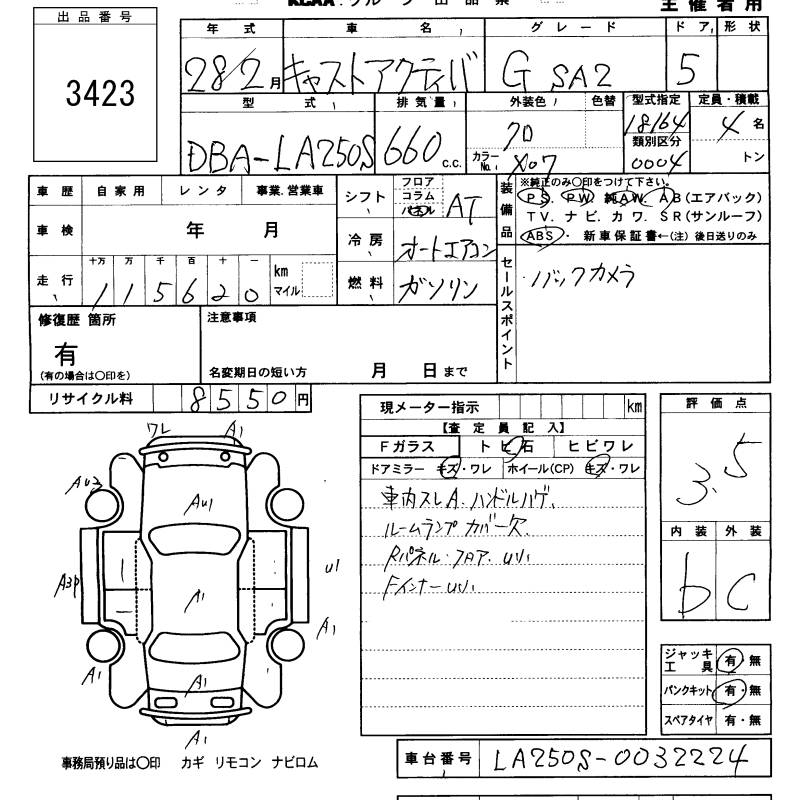 KCAA.グループ 出品票
主催者用
出品番号
3423
年式 車名 グレード ドア 形状
28/2月 キャストアクティバ G SA2 5
型式 排気量 外装色 色替 型式指定 定員・積載
DBA-LA250S 660 c.c. クロ 18164 4名
類別区分
カラーNo. X07 0004 トン
車歴 自家用 レンタ 事業.営業車
シフト フロア コラム パネル AT
装備品 ※純正のみ○印をつけて下さい。
PS. PW 純AW. AB(エアバック)
TV. ナビ. カワ. SR(サンルーフ)
ABS・ 新車保証書←(注)後日送りのみ
車検 年 月
冷房 オートエアコン
走行 十万 万 千 百 十 一
115620 km マイル
燃料 ガソリン
セールスポイント ・バックカメラ
修復歴 箇所 注意事項
有
(有の場合は○印を) 名変期日の短い方 月 日まで
リサイクル料 8550円
現メーター指示 km
評価点
3.5
【査定員記入】
Fガラス トビ石 ヒビワレ
ドアミラー キズ・ワレ ホイール(CP) キズ・ワレ
車内スレA. ハンドルハゲ.
ルームランプカバー欠
Rパネル・フロア. UU.
FインナーUU.
内装 外装
b C
ワレ A1
AU2 AU1
A3P A1 U1
A1
A1
A1
ジャッキ工具 有・無
パンクキット 有・無
スペアタイヤ 有・無
事務局預り品は○印 カギ リモコン ナビロム
車台番号 LA250S-0032224